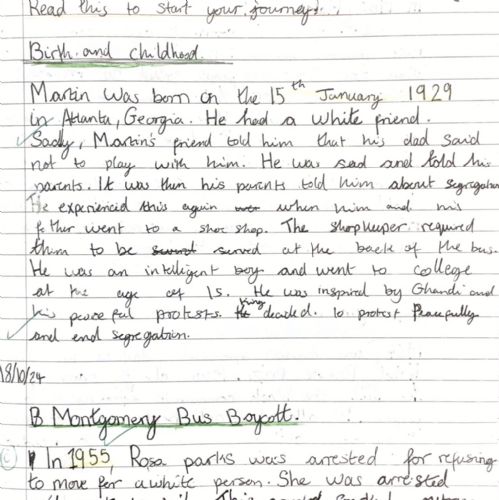 Read this to start your journey.
Birth and childhood.
Martin was born on the 15th January 1929
in Atlanta, Georgia. He had a white friend.
Sadly, Martin's friend told him that his dad said
not to play with him. He was sad and told his
parents. It was then his parents told him about segregation
He experienced this again when him and his
father went to a shoe shop. The shopkeeper required
them to be served at the back of the bus.
He was an intelligent boy and went to college
at the age of 15. He was inspired by Ghandi and
his peaceful protests. King decided. to protest Peacefully
and end segregation.
18/10/24
B Montgomery Bus Boycott.
In 1955, Rosa parks was arrested for refusing
to move for a white person. She was arrested